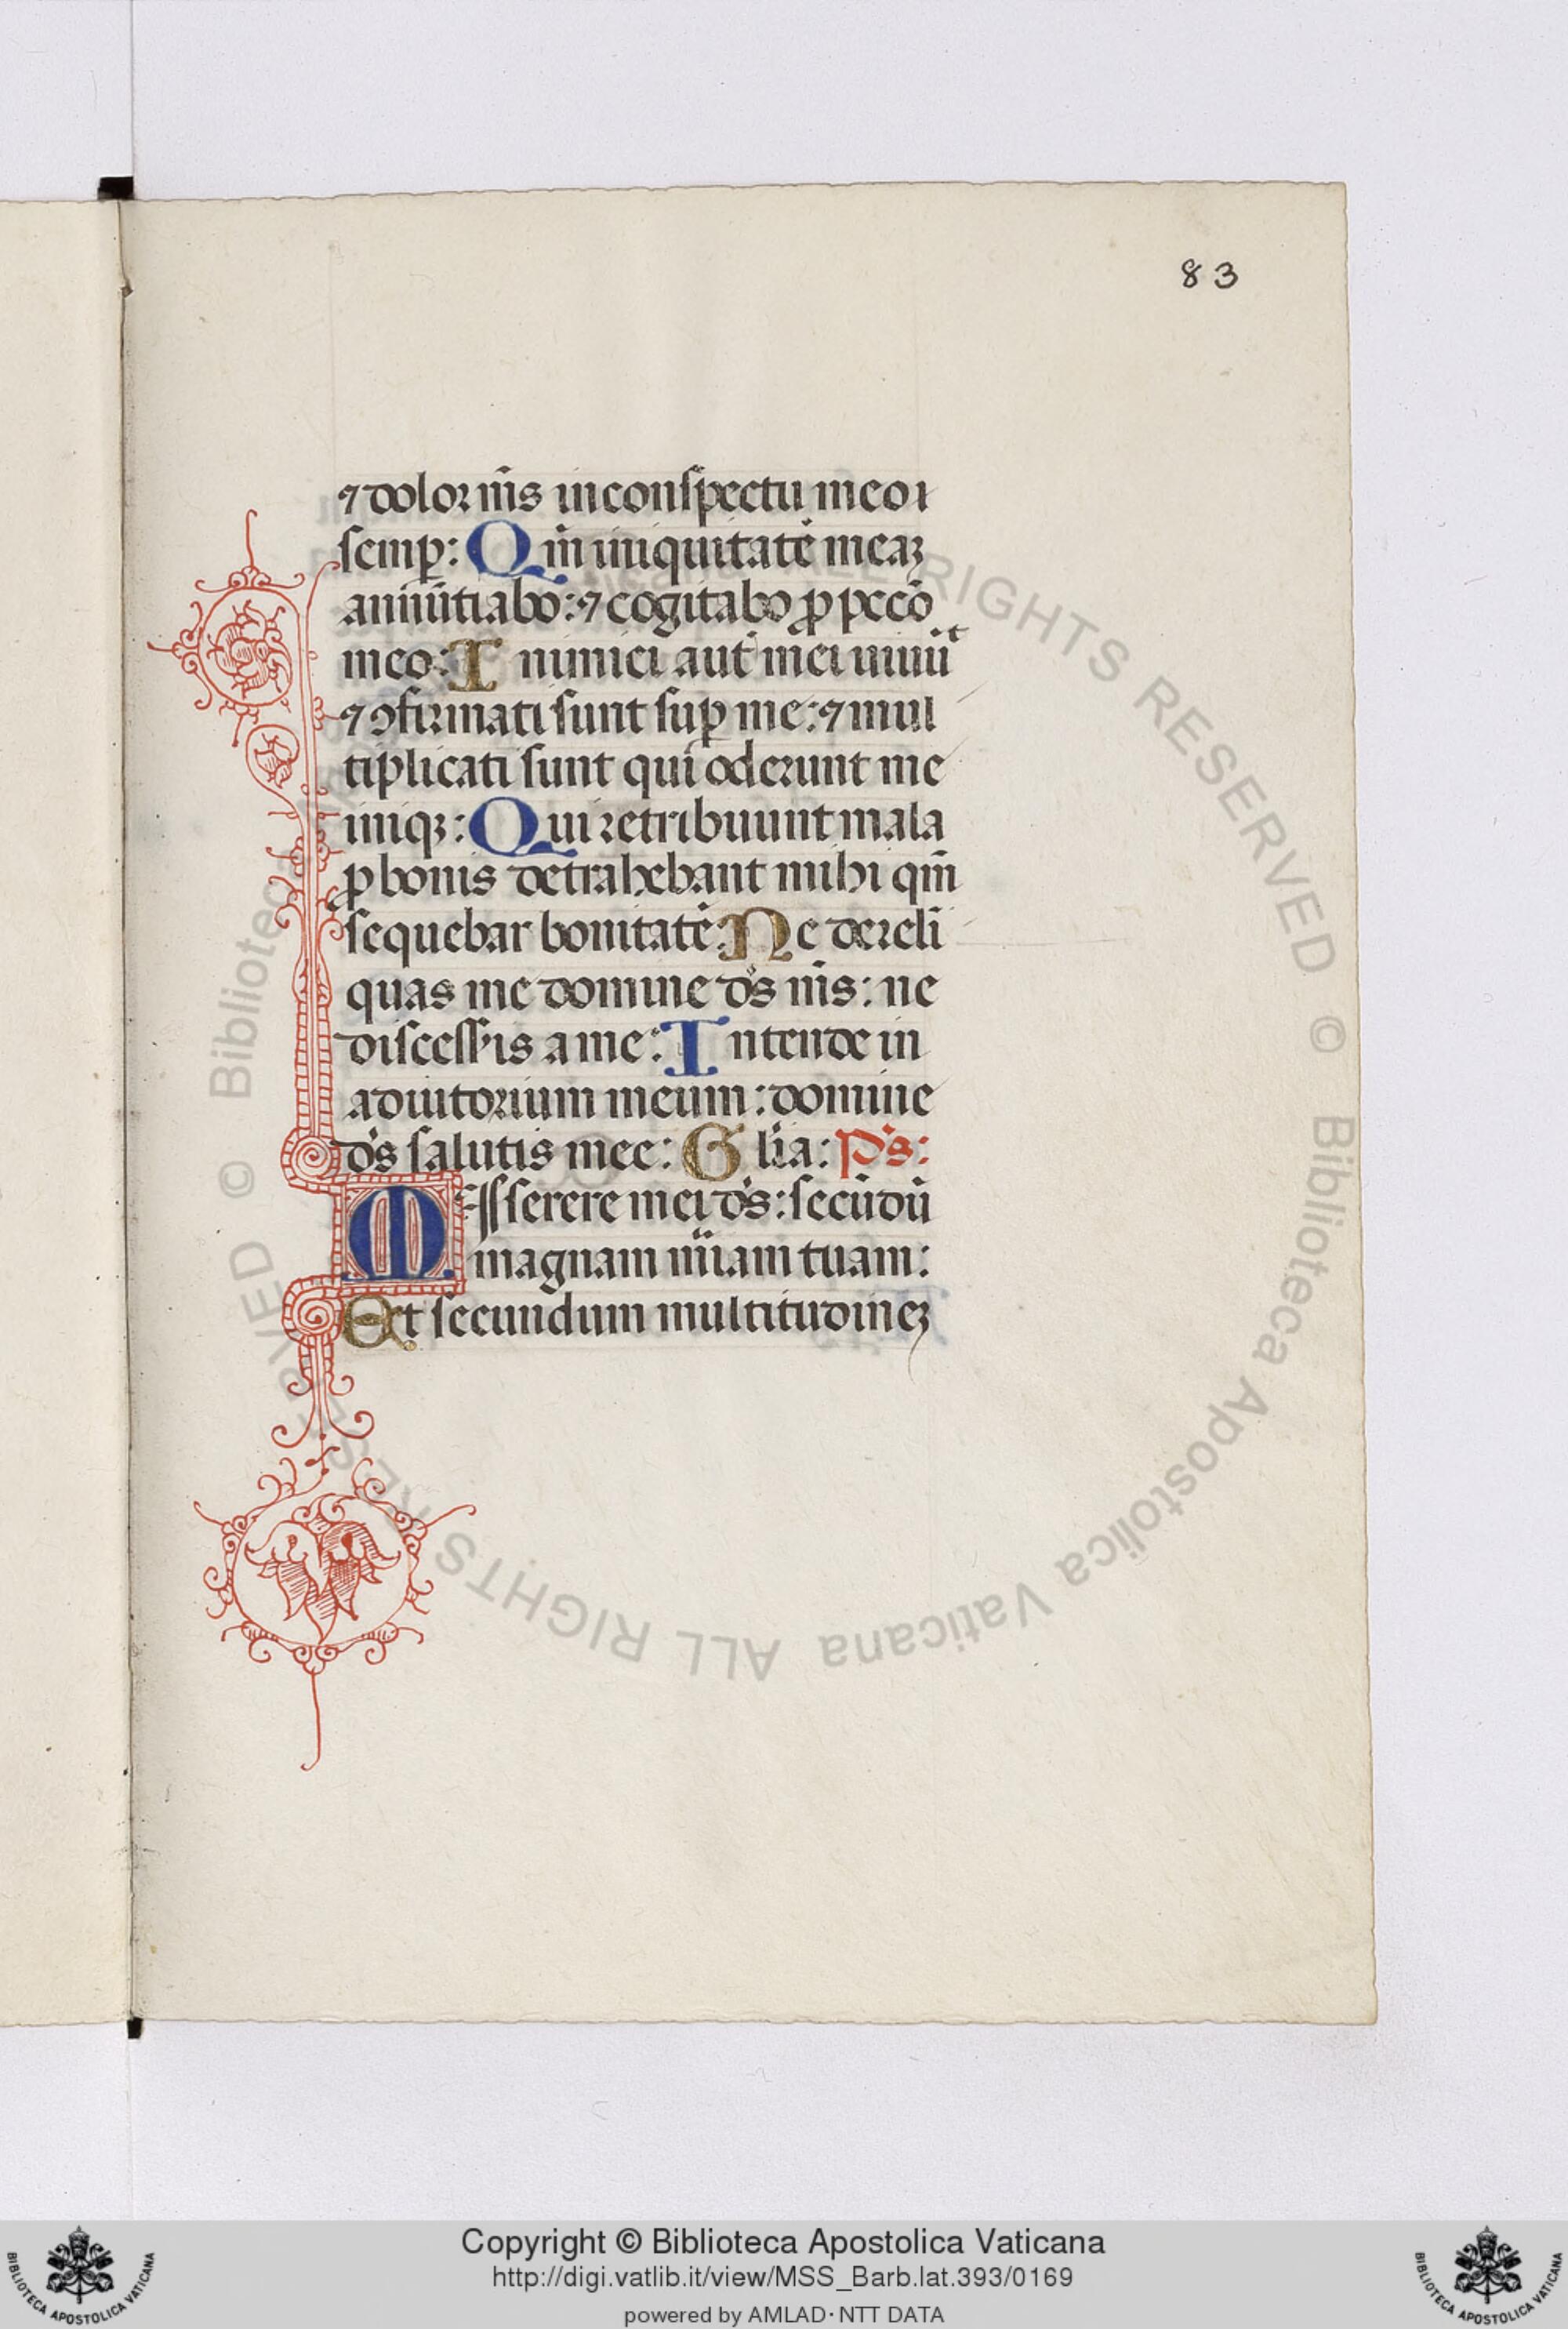 83
⁊ dolor m̄s in conspectu meo ı
semꝑ: Qm̄ iniquitatē meaꝫ
annūtiabo: ⁊ cogitabo ꝓ pccō
meo: Inimici aut̄ mei uiuūt
⁊ ꝯfirmati sunt suꝑ me: ⁊ mul
tiplicati sunt qui oderunt me
iniqꝫ: Qui retribuunt mala
ꝓ bonis detrahebant mihi qm̄
sequebar bonitatē: Ne dereli
quas me domine ds̄ m̄s: ne
discesseris a me: Intende in
adiutorium meum: domine
ds̄ salutis mee: Glīa: Ps̄:
Misserere mei ds̄: secūdū
magnam mīam tuam:
Et secundum multitudineꝫ
© Biblioteca Apostolica Vaticana ALL RIGHTS RESERVED
© Biblioteca Apostolica Vaticana ALL RIGHTS RESERVED
Copyright © Biblioteca Apostolica Vaticana
http://digi.vatlib.it/view/MSS_Barb.lat.393/0169
powered by AMLAD·NTT DATA
BIBLIOTECA APOSTOLICA VATICANA
BIBLIOTECA APOSTOLICA VATICANA